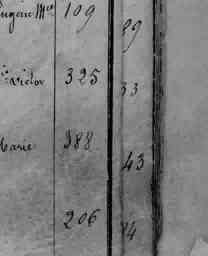 Eugène Mce 109 89
Victor 325 33
Marie 388 43
206 14